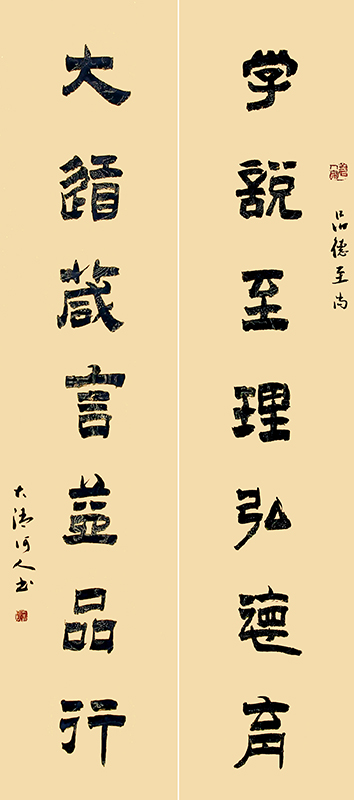 品德至尚
学說至理弘德育
大道箴言益品行
大清河人书